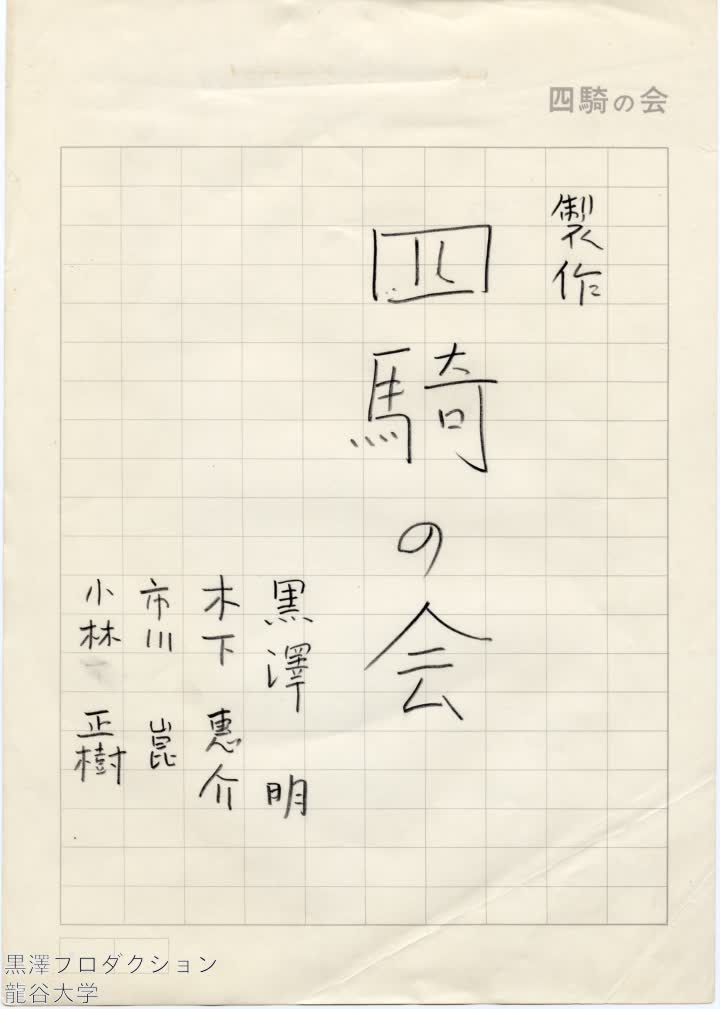 四騎の会
製作
四騎の会
黒澤 明
木下 惠介
市川 崑
小林 正樹
黒澤プロダクション
龍谷大学